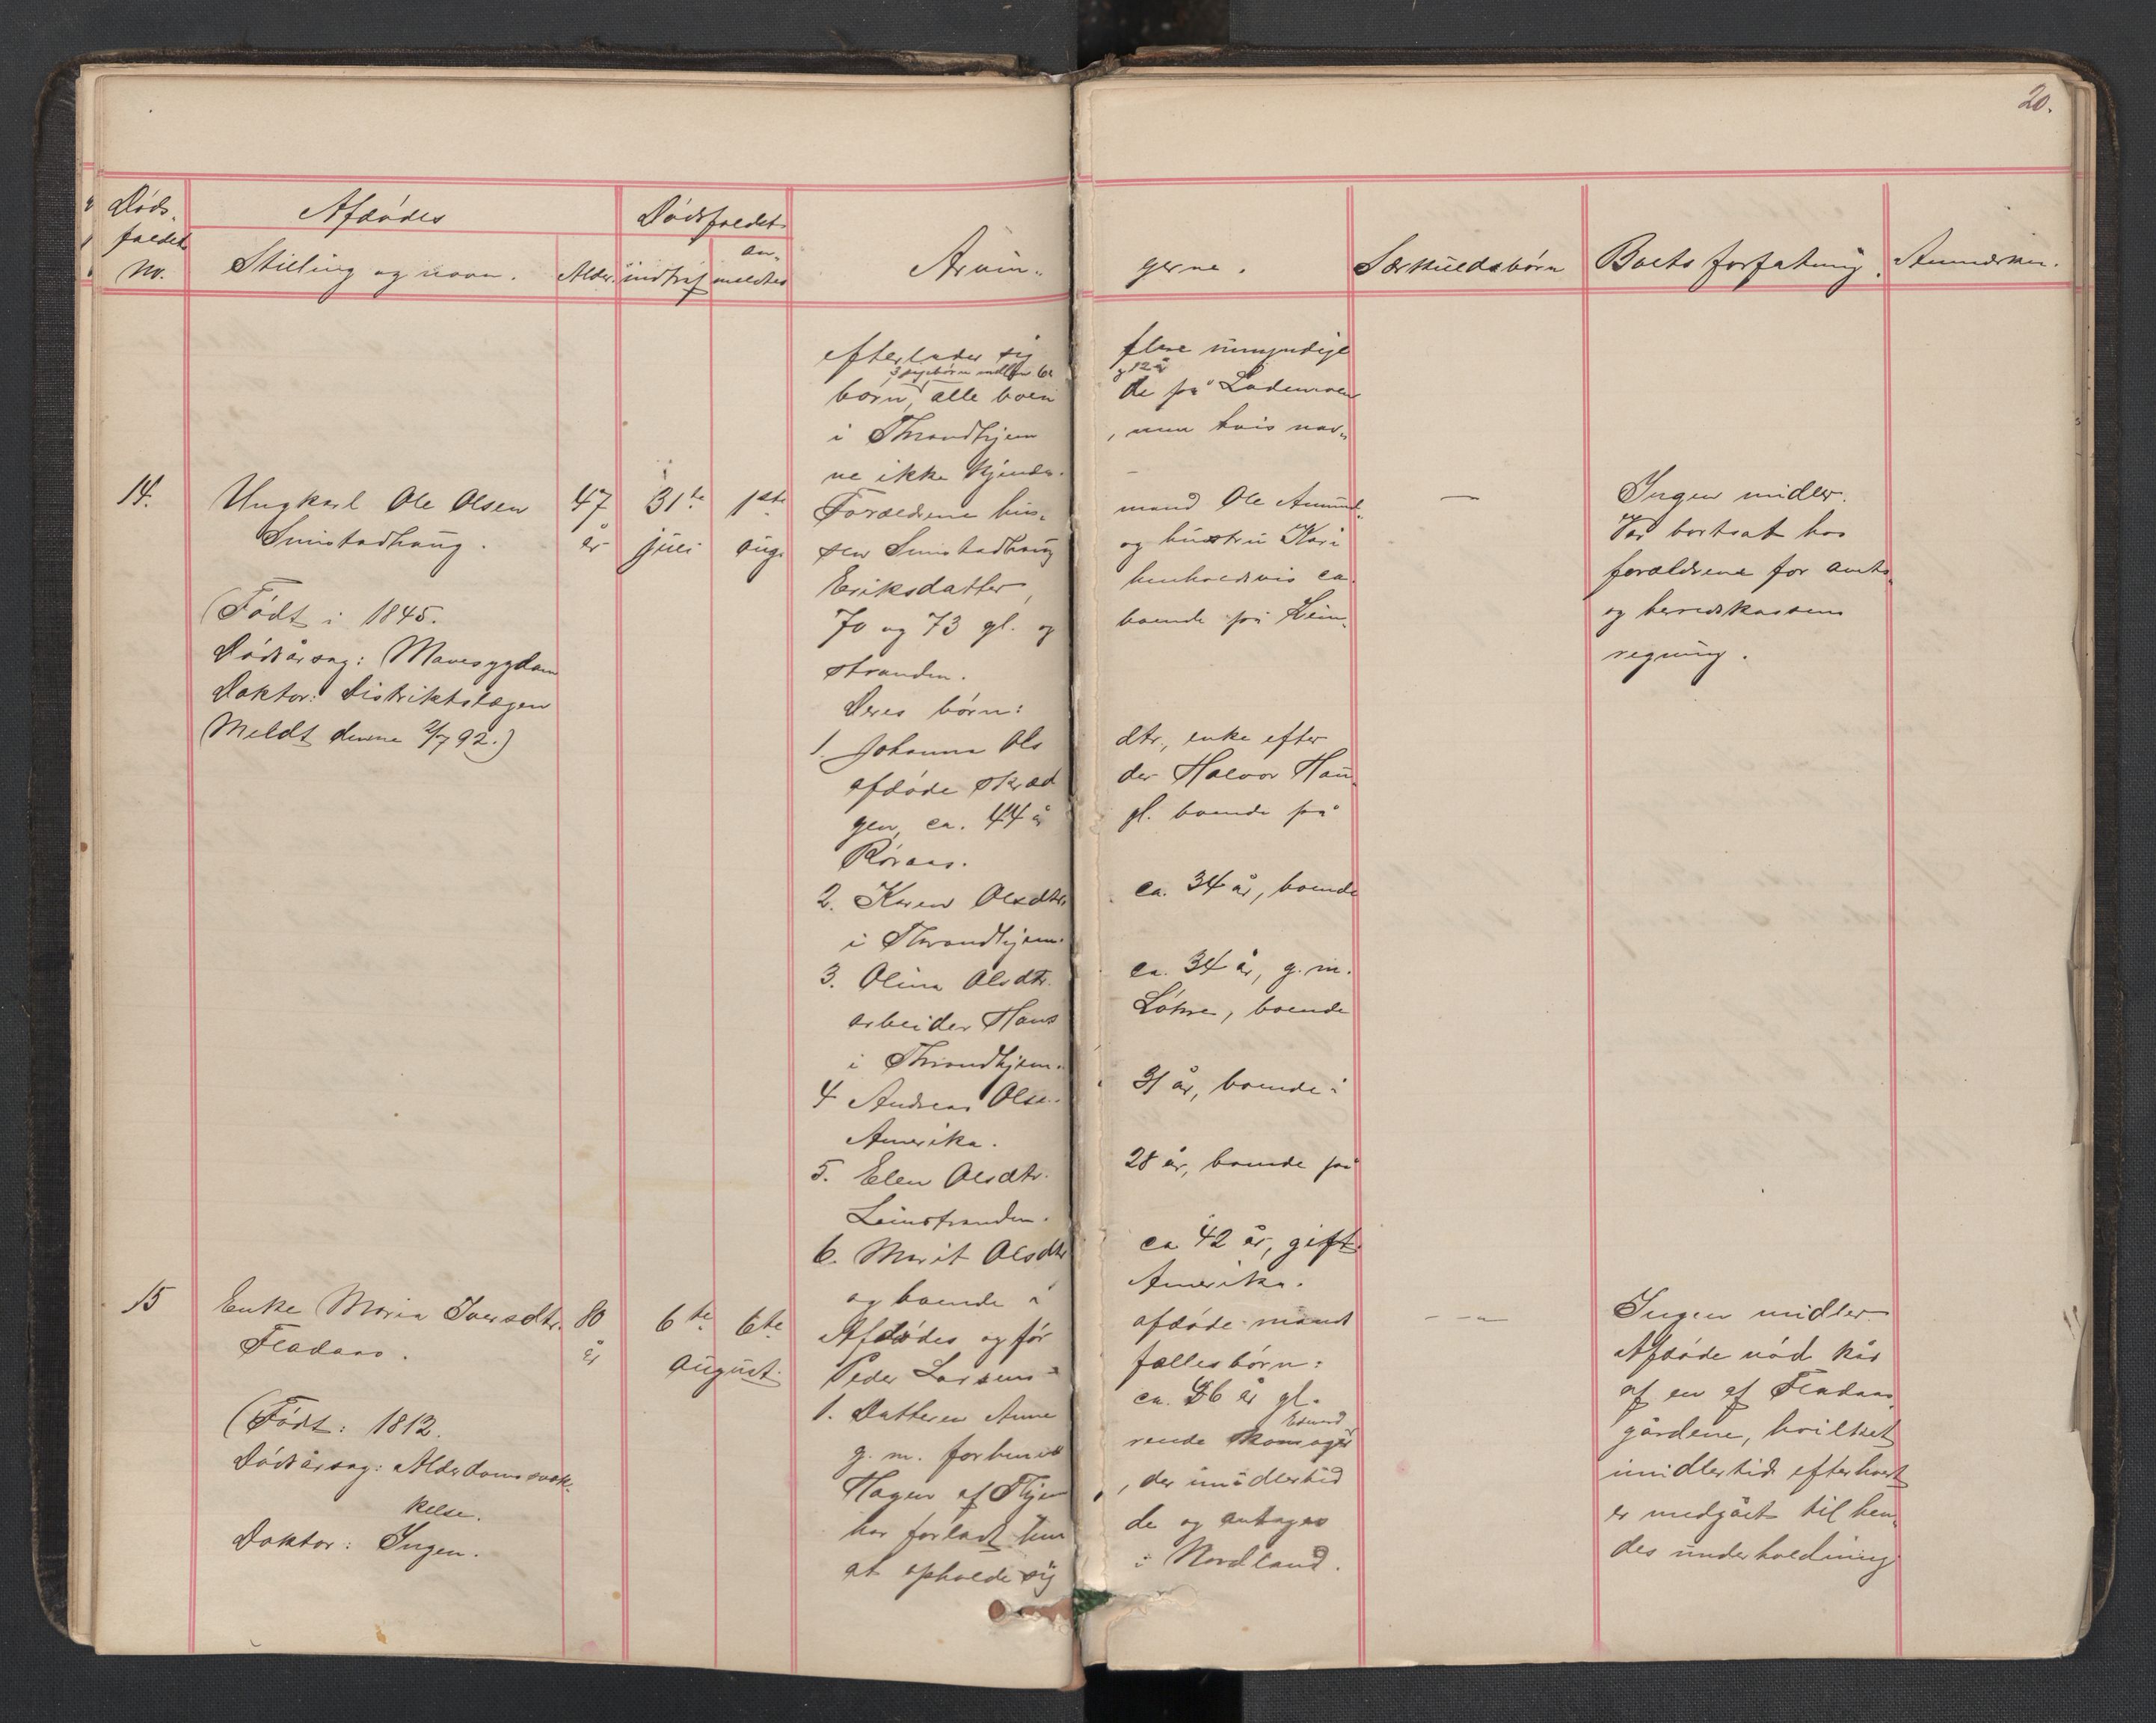 20.
Døds-
faldets
No.
Afdødes
Stilling og navn.
Alder.
Dødsfaldet
indtraf
an-
meldtes
Arvin-
gerne.
Særkuldsbørn
Boets forfatning.
Anmærkn.
efterlader sig flere umyndige
3 pigebørn mellem 6 og 12 år
børn, alle boende på Lademoen
i Throndhjem, men hvis nav-
ne ikke kjendes.
14.
Ungkarl Ole Olsen
Simstadhaug.
47
år
31te
juli
1ste
aug.
(Født i 1845.
Dødsårsag: Mavesygdom
Doktor: Distriktslægen
Meldt denne 2/7 92.)
Forældrene hus- mand Ole Amund-
sen Simstadhaug og hustru Kari
Eriksdatter, henholdsvis ca.
70 og 73 gl. og boende på Lein-
stranden.
Deres børn:
1. Johanna Ols dtr., enke efter
afdøde skræd der Halvor Hau-
gen, ca. 44 år gl. boende på
Røraas.
2. Karen Olsdtr. ca. 34 år, boende
i Throndhjem.
3. Olina Olsdtr. ca. 34 år, g. m.
arbeider Hans Løhre, boende
i Throndhjem.
4 Andreas Olsen 31 år, boende i
Amerika.
5. Elen Olsdtr. 28 år, boende på
Leinstranden.
6. Marit Olsdtr ca 42 år, gift
og boende i Amerika.
—
Ingen midler.
Var bortsat hos
forældrene for amts-
og herredskassens
regning.
15
Enke Maria Iversdtr.
Fladaas.
80
år
6te
6te
august.
(Født: 1812.
Dødsårsag: Alderdomssvæk-
kelse.
Doktor: Ingen.
Afdødes og før afdøde mand
Peder Larsens fællesbørn:
1. Datteren Anne ca. 56 år gl.
Edvard
g. m. forhenværende skomager
Hagen af Thjem, der imidlertid
har forladt hende og antages
at opholde sig i Nordland.
— —
Ingen midler
Afdøde nød kår
af en af Fladaas-
gårdene, hvilket
imidlertid efterhvert
er medgåt til hen-
des underholdning